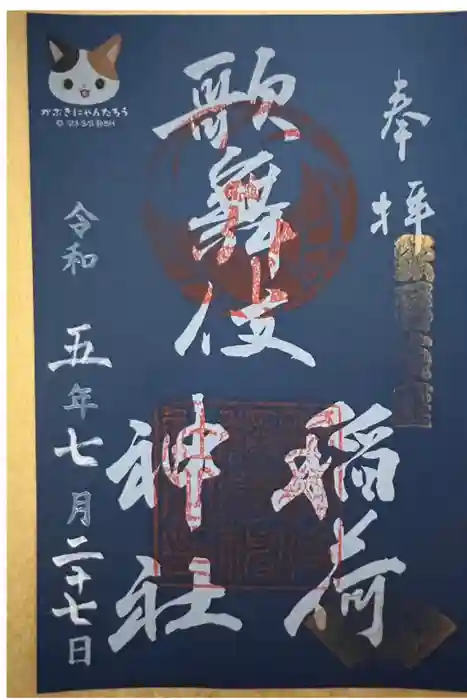 奉拝
歌舞伎
稲荷
神社
令和五年七月二十七日
かぶきにゃんたろう